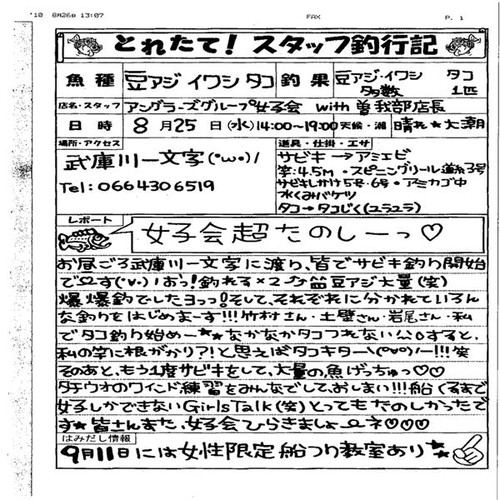 '10 8月26日 13:07 FAX P. 1
とれたて！スタッフ釣行記
魚種 豆アジ イワシ タコ 釣果 豆アジ・イワシ 多数 タコ 1匹
店名・スタッフ アングラーズグループ女子会 with 曽我部店長
日時 8月25日(水)14:00〜19:00 天候・潮 晴れ☆大潮
場所・アクセス
武庫川一文字(°ω°)/
Tel: 0664306519
道具・仕掛・エサ
サビキ→アミエビ
竿:4.5m・スピニングリール道糸3号
サビキしかけ5号・6号・アミカゴ中
水くみバケツ
タコ→タコじく(ユラユラ)
レポート
女子会超たのしーっ♡
お昼ごろ武庫川一文字に渡り、皆でサビキ釣り開始
でΩす(°∀°)おっ!釣れる×2♪♪豆アジ大量(笑)
爆爆釣でしたヨっっ!そして、それぞれに分かれていろん
な釣りをはじめまーす!!!竹村さん・土壁さん・岩尾さん・私
でタコ釣り始めー★★なかなかタコつれない
すると、
私の竿に根がかり?!と思えばタコキター\(°∀°)/ー!!!笑
そのあと、もう1度サビキをして、大量の魚げっちゅっ♡♡
タチウオのワインド練習をみんなでしておしまい!!!船くるまで
女子しかできないGirls Talk(笑)とってもたのしかったで
す★皆さんまた、女子会ひらきましょーΩネ♡♡♡
はみだし情報
9月11日には女性限定船つり教室あり★